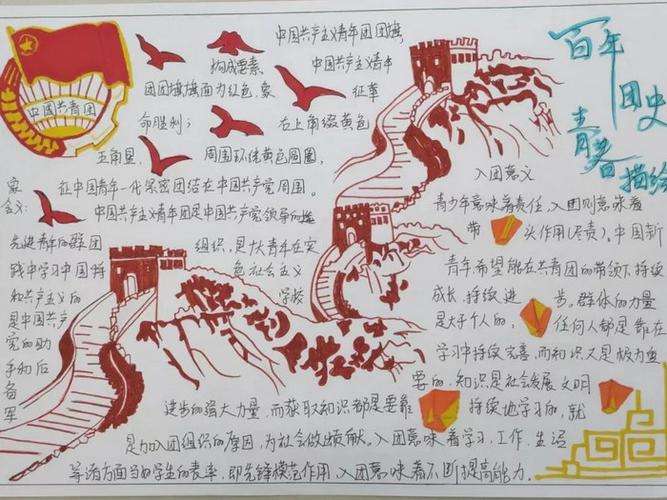 百年
团史
青春
描绘
中国共青团
中国共产主义青年团团旗
构成要素 中国共产主义青年
团团旗旗面为红色，象 征革
命胜利；右上角缀黄色
五角星， 周围环绕黄色圆圈，
象 征中国青年一代紧密团结在中国共产党周围。
含义: 中国共产主义青年团是中国共产党领导的
先进青年的群团 组织，是广大青年在实
践中学习中国特 色社会主义
和共产主义的 学校
是中国共产
党的助
手和后
备军
入团意义
青少年意味着责任，入团则意味着
带 头作用(尽责)。中国新
青年，希望能在共青团的带领下持续
成长，持续进 步。群体的力量
是大于个人的， 任何人都是靠在
学习中持续完善，而知识又是极为重
要的，知识是社会发展文明
进步的强大力量，而获取知识都是要靠 持续地学习的，就
是加入团组织的原因，为社会做贡献。入团意味着学习、工作、生活
等诸方面当好学生的表率，即先锋模范作用，入团意味着不断提高能力。